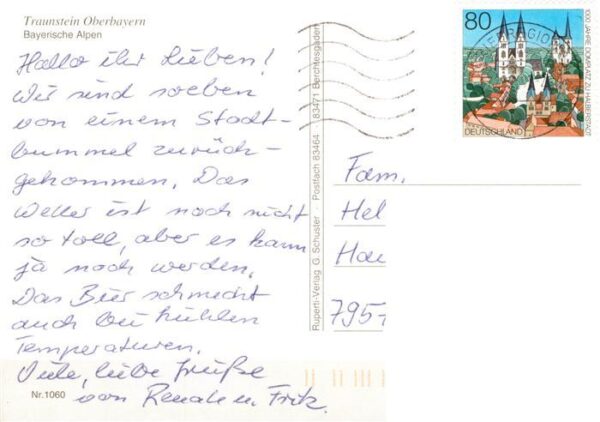 Traunstein Oberbayern
Bayerische Alpen
Hallo ihr Lieben!
Wir sind soeben
von einem Stadt-
bummel zurück-
gekommen. Das
Wetter ist noch nicht
so toll, aber es kann
ja noch werden.
Das Bier schmeckt
auch bei kühlen
Temperaturen.
Viele, liebe Grüße
von Renate u. Fritz.
Nr.1060
Ruperti-Verlag G. Schuster · Postfach 83464 · 83471 Berchtesgaden
80
DEUTSCHLAND
1000 JAHRE DOMPLATZ ZU HALBERSTADT
Fam.
Hel
Hau
795